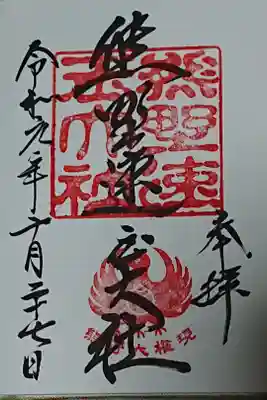 奉拝
熊野速玉大社
熊野速
玉大社
令和元年 月二十七日
権現